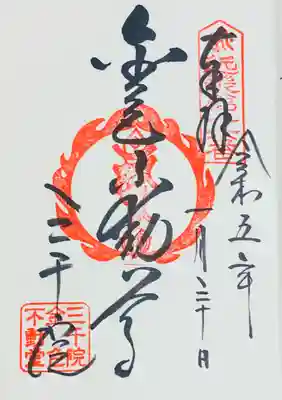 奉拝
令和五年
一月二十日
金色不動尊
三千院
三千院
金色
不動堂